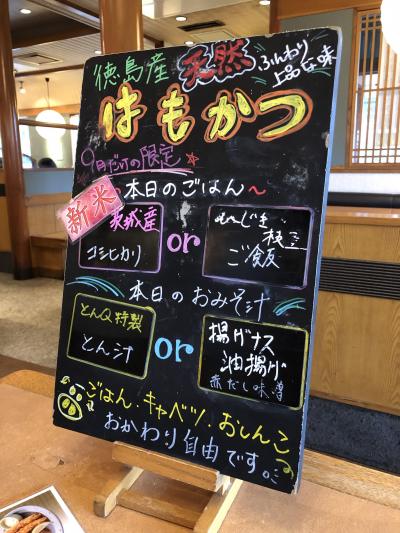 徳島産 天然 ふんわり上品な味
はもかつ
9月だけの限定
本日のごはん
新米 茨城産 コシヒカリ
or
むらさき枝豆 ご飯
本日のおみそ汁
とんQ特製 とん汁
or
揚げナス 油揚げ 赤だし味噌
ごはん・キャベツ・おしんこの
おかわり自由です。